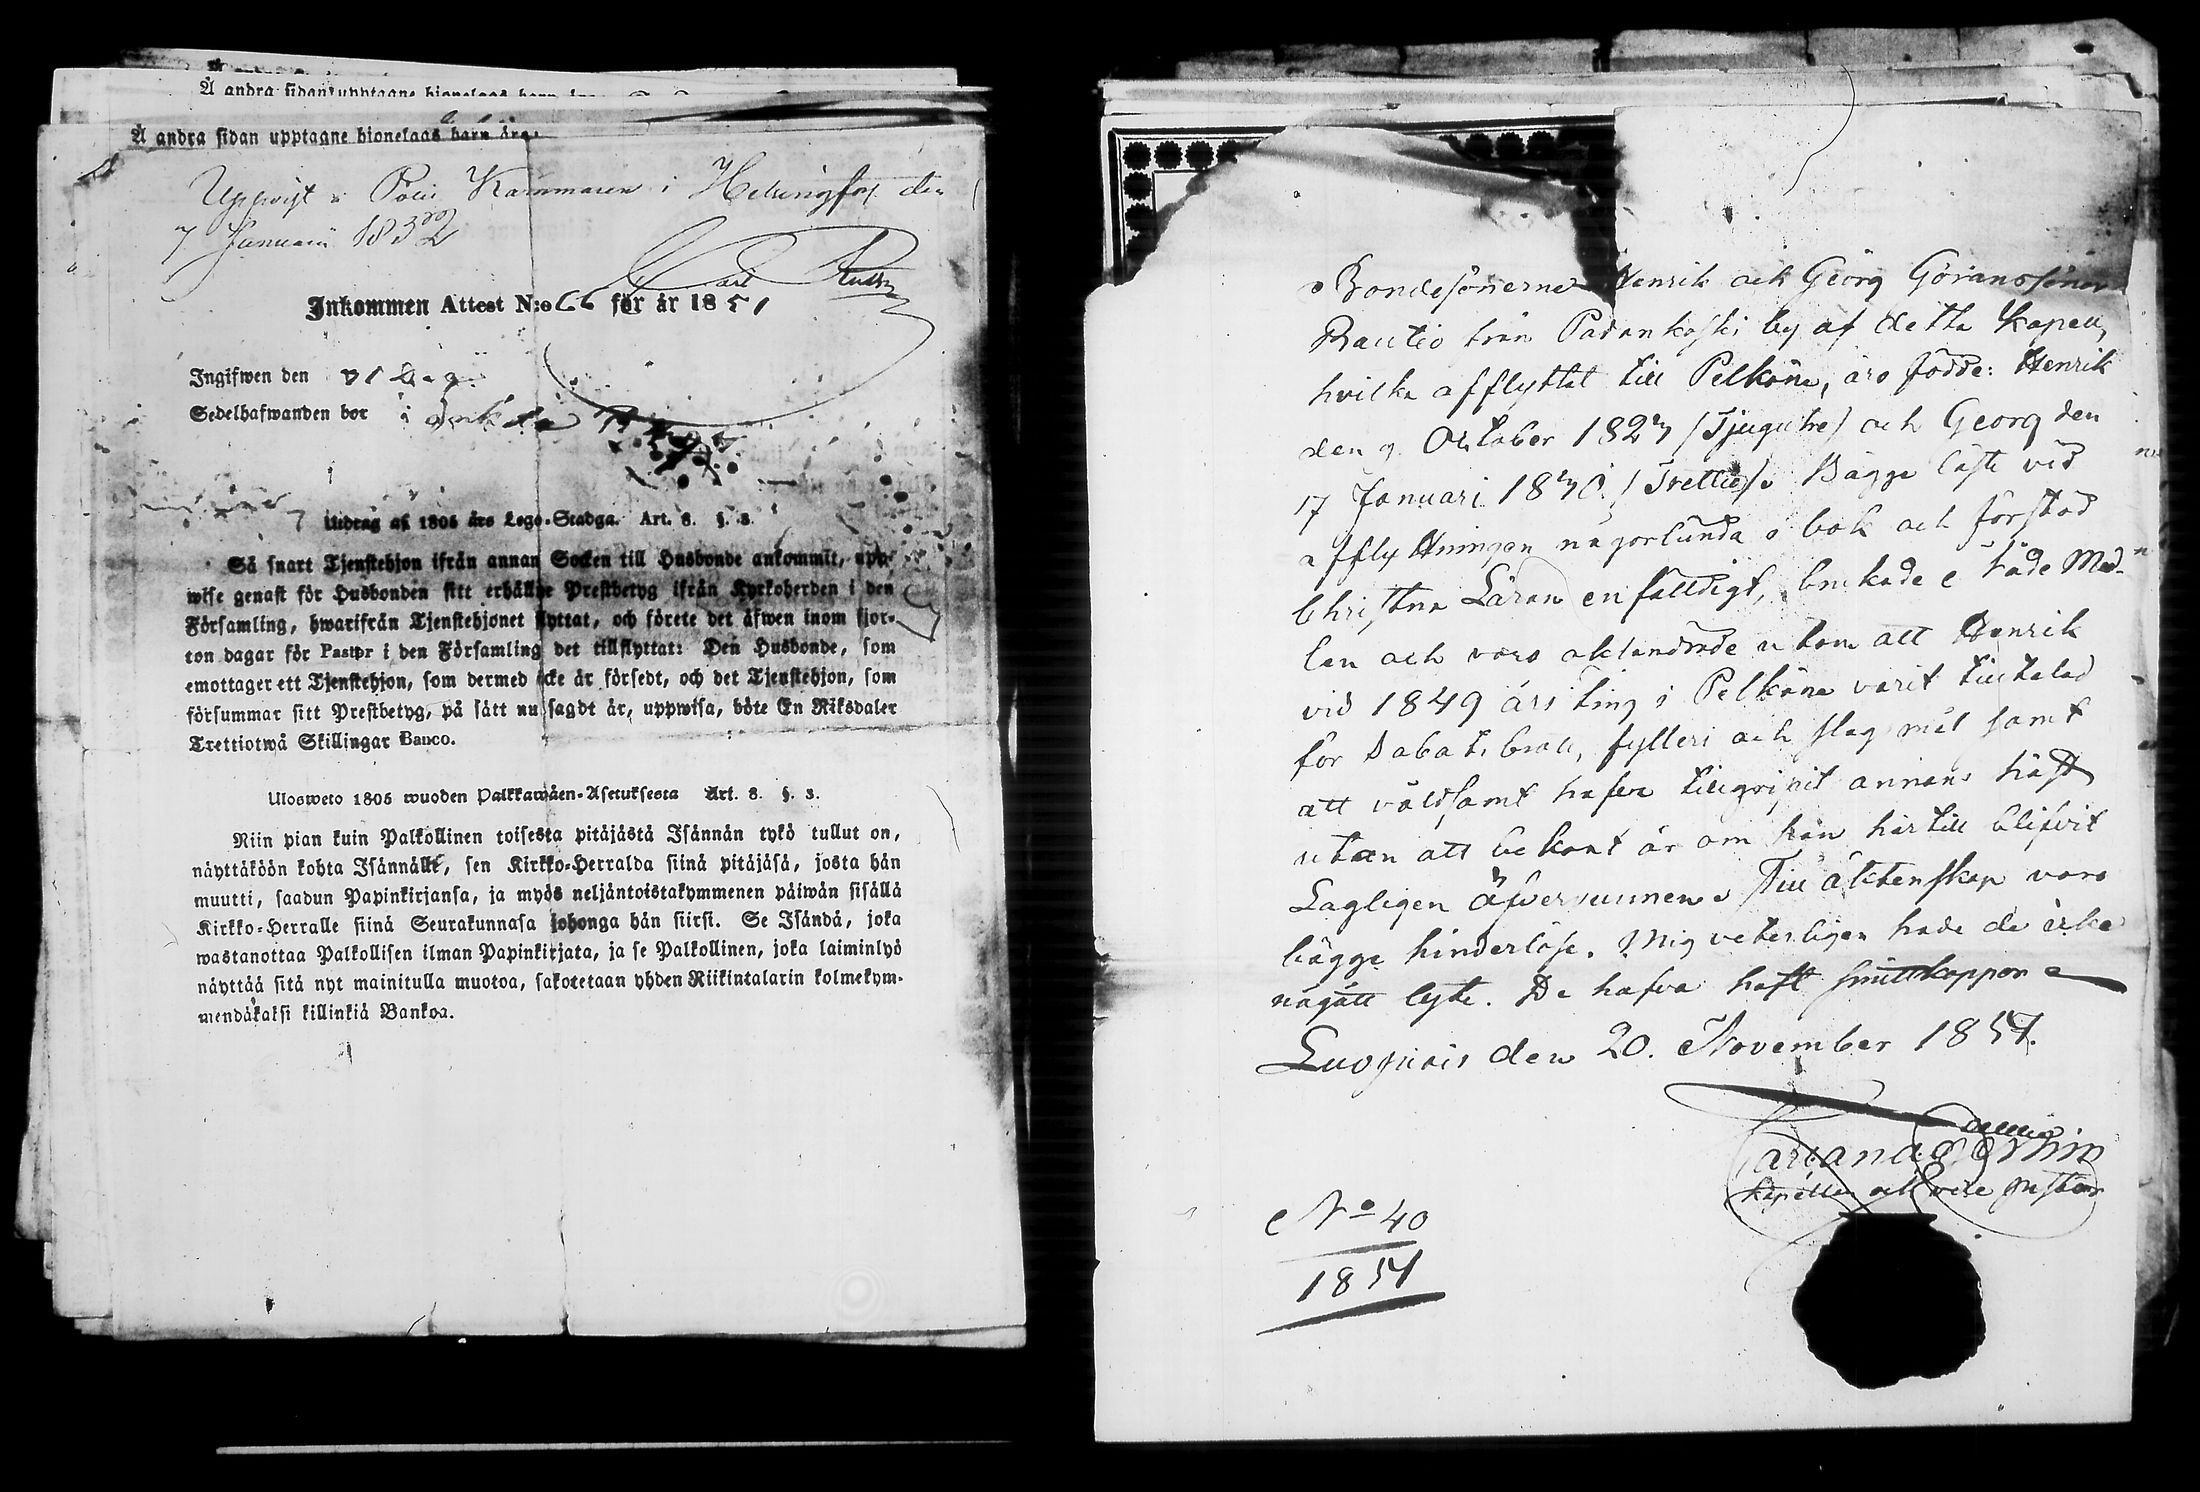 Å andra sidan upptagne hjonelags barn äro:
Å andra sidan upptagne hjonelags barn äro:
Uppvist i Polis Kammaren i Helsingfors den
7 Januari 1852
Carl
Inkommen Attest N:o 66 för år 1851
Ingifwen den 31 Dec.
Sedelhafwanden bor i
Utdrag af 1805 års Lego-Stadga. Art. 8. §. 3.
Så snart Tjenstehjon ifrån annan Socken till Husbonde ankommit, upp-
wise genast för Husbonden sitt erhållne Prestbetyg ifrån Kyrkoherden i den
Församling, hwarifrån Tjenstehjonet flyttat, och förete det äfwen inom fjor-
ton dagar för Pastor i den Församling det tillflyttat: Den Husbonde, som
emottager ett Tjenstehjon, som dermed icke är försedt, och det Tjenstehjon, som
försummar sitt Prestbetyg, på sätt nu sagdt är, uppwisa, böte En Riksdaler
Trettiotwå Skillingar Banco.
Ulosweto 1805 wuoden Palkkawäen-Asetuksesta Art. 8. §. 3.
Niin pian kuin Palkollinen toisesta pitäjästä Isännän tykö tullut on,
näyttäköön kohta Isännälle, sen Kirkko-Herralda siinä pitäjäsä, josta hän
muutti, saadun Papinkirjansa, ja myös neljäntoistakymmenen päiwän sisällä
Kirkko-Herralle siinä Seurakunnasa johonga hän siirsi. Se Isändä, joka
wastanottaa Palkollisen ilman Papinkirjata, ja se Palkollinen, joka laiminlyö
näyttää sitä nyt mainitulla muotoa, sakotetaan yhden Riikintalarin kolmekym-
mendäkaksi killinkiä Bankoa.
Bondesönerne Henrik och Georg Göranssöner
Rautio från Padankoski by af detta Kapell,
hvilka afflyttat till Pelkäne, äro födde: Henrik
den 9 October 1823 (Tjugutre) och Georg den
17 Januari 1830. (Trettio). Bägge läste vid
afflyttningen någorlunda i bok och förstod
Christna Läran enfalldigt, brukade Nåde Med-
len och voro oklandrade utom att Henrik
vid 1849 års ting i Pelkäne varit tilltalad
för Sabatsbrott, fylleri och slagsmål samt
att våldsamt hafva tillgripit annans häst
utan att bekant är om han härtill blifvit
Lagligen öfvervunnen. Till äktenskap voro
bägge hinderlöse. Mig veterligen hade de icke
någått lyte. De hafva haft smittkoppor
Luopiois den 20. November 1851.
Kapellan och vice pastor
No 40
1851